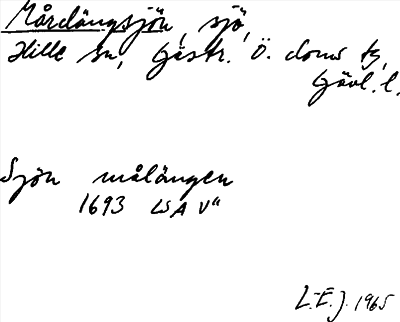 Mårdängsjön, sjö,
Hille sn, Gästr. Ö. doms tg,
Gävl. l.
Sjön målängen
1693 LSA V"
L.-E. J. 1965